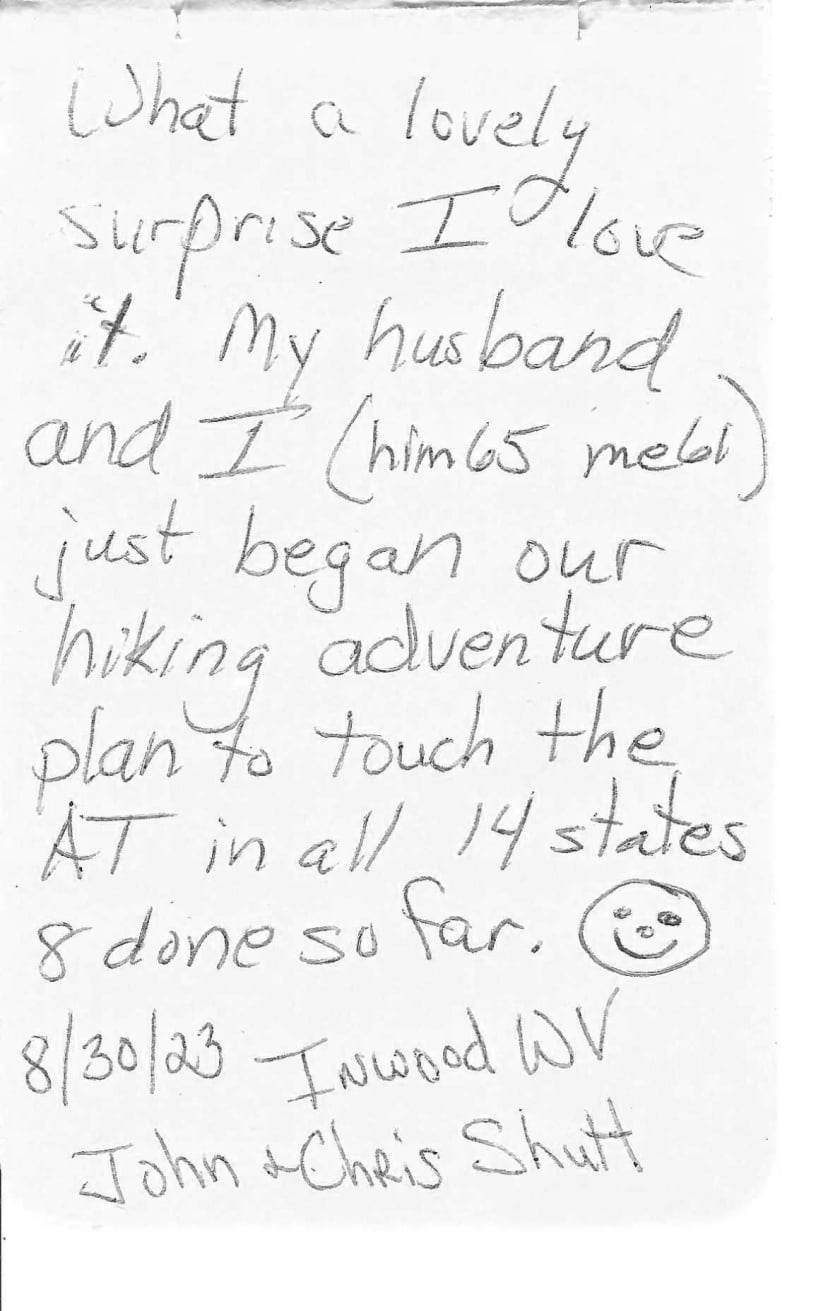 What a lovely
surprise I love
it. My husband
and I (him 65 me 61)
just began our
hiking adventure
plan to touch the
AT in all 14 states
8 done so far.
8/30/23 Inwood WV
John + Chris Shutt